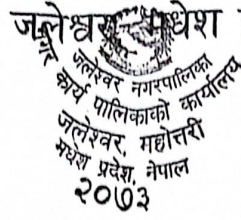 जलेश्वर नगरपालिका
नगर कार्य पालिकाको कार्यालय
जलेश्वर, महोत्तरी
मधेश प्रदेश, नेपाल
२०७३